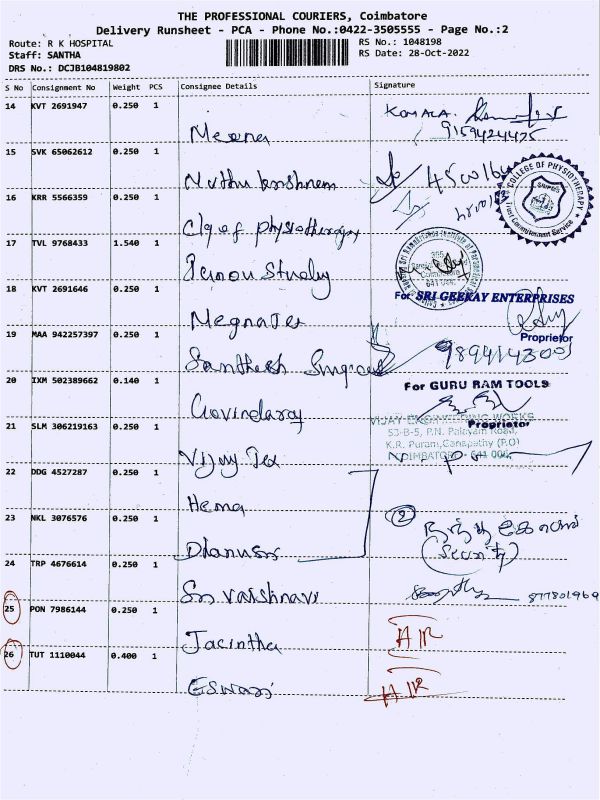 THE PROFESSIONAL COURIERS, Coimbatore
Delivery Runsheet - PCA - Phone No.:0422-3505555 - Page No.:2
Route: R K HOSPITAL
RS No.: 1048198
Staff: SANTHA
RS Date: 28-Oct-2022
DRS No.: DCJB104819802
S No Consignment No Weight PCS Consignee Details Signature
14 KVT 2691947 0.250 1
KOMALA.
9159424475
Meena
15 SVK 65062612 0.250 1
COLLEGE OF PHYSIOTHERAPY
Trust Commitment Service
16 KRR 5566359 0.250 1
Clg of physiotherapy
17 TVL 9768433 1.540 1
641 006
18 KVT 2691646 0.250 1
For SRI GEEKAY ENTERPRISES
Proprietor
19 MAA 942257397 0.250 1
Santhosh
20 IXM 502389662 0.140 1
For GURU RAM TOOLS
Proprietor
Govindaraj
21 SLM 306219163 0.250 1
VIJAY ENGINEERING WORKS
53-B-5, P.N. Palayam Road,
K.R. Puram, Ganapathy (P.O)
COIMBATORE - 641 006.
Vijay Tex
22 DDG 4527287 0.250 1
Hema
23 NKL 3076576 0.250 1
2
(Security)
24 TRP 4676614 0.250 1
Sri Vaishnavi
25 PON 7986144 0.250 1
Jacintha
26 TUT 1110044 0.400 1
Eswari